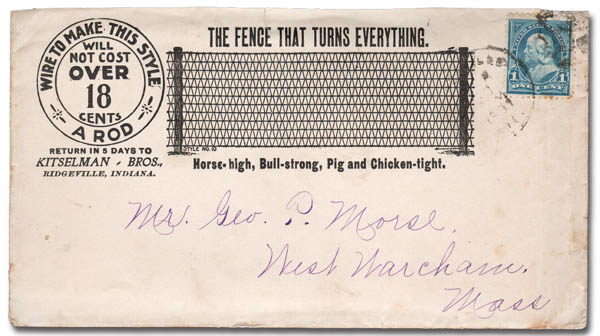 WIRE TO MAKE THIS STYLE
WILL
NOT COST
OVER
18
CENTS
A ROD
RETURN IN 5 DAYS TO
KITSELMAN - BROS.,
RIDGEVILLE, INDIANA.
THE FENCE THAT TURNS EVERYTHING.
STYLE NO. 10
Horse-high, Bull-strong, Pig and Chicken-tight.
1 ONE CENT 1
Mr. Geo. P. Morse.
West Warcham.
Mass